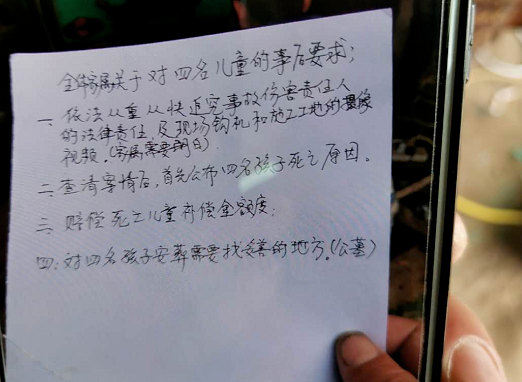 全体家属关于对四名儿童的事后要求；
一、依法从重从快追究事故伤害责任人
的法律责任，及现场钩机和施工工地的摄像
视频。(家属需要明白)
二、查清案情后，首先公布四名孩子死亡原因。
三、赔偿死亡儿童补偿金额度；
四：对四名孩子安葬需要找妥善的地方。(公墓)